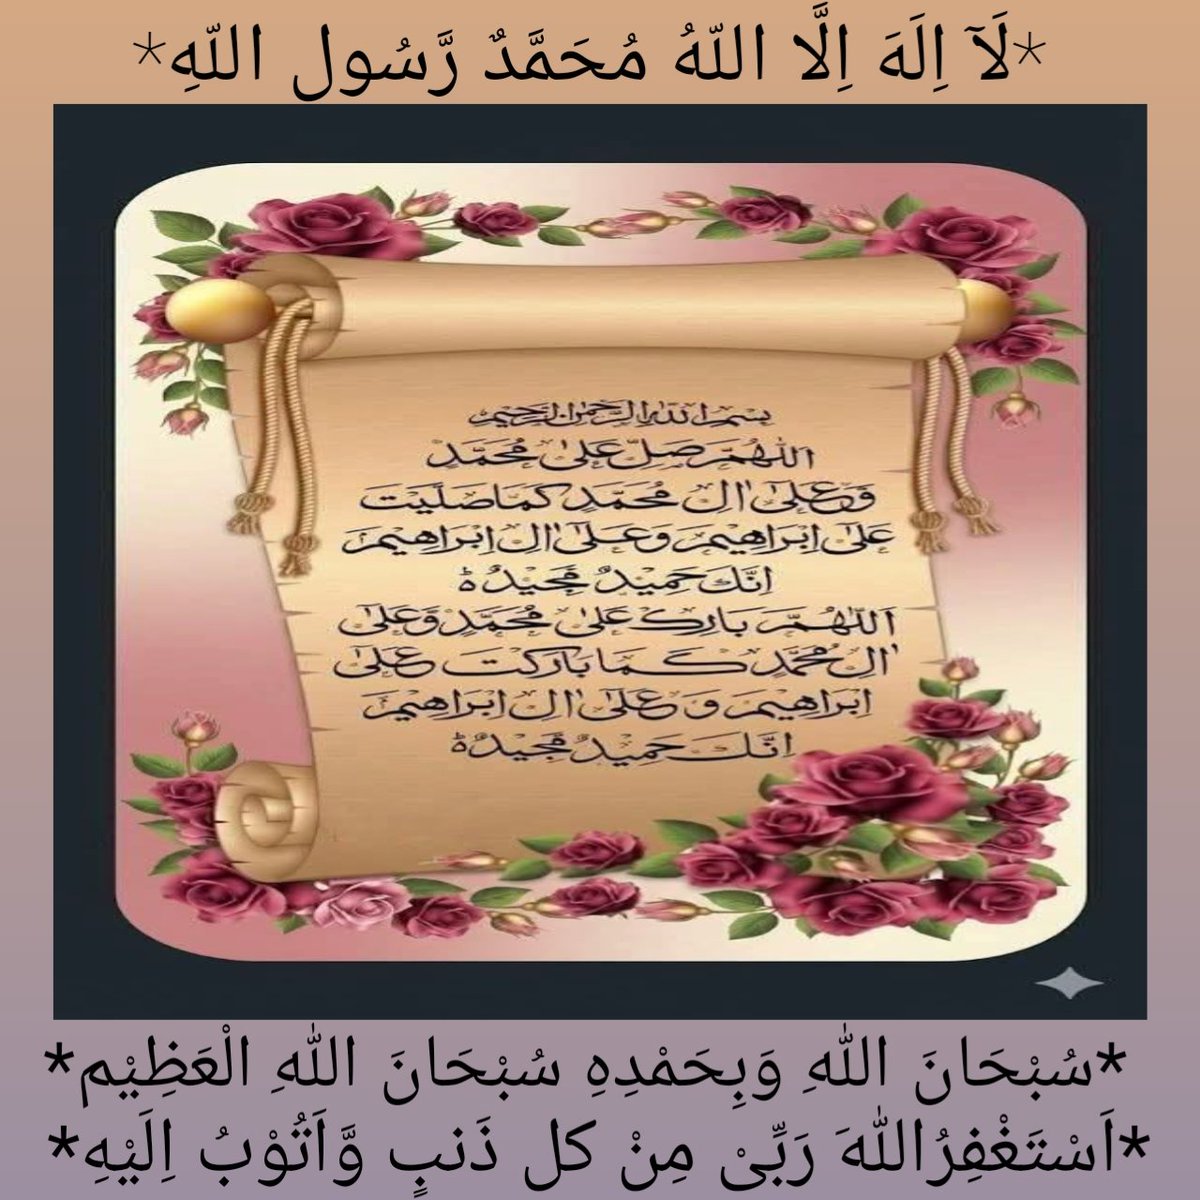 *لَآ اِلَهَ اِلَّا اللّٰهُ مُحَمَّدٌ رَّسُول اللّٰهِ*
بسم الله الرحمن الرحيم
اَللّٰهُمَّ صَلِّ عَلٰى مُحَمَّدٍ
وَّعَلٰٓى اٰلِ مُحَمَّدٍ كَمَا صَلَّيْتَ
عَلٰٓى اِبْرَاهِيْمَ وَعَلٰٓى اٰلِ اِبْرَاهِيْمَ
اِنَّكَ حَمِيْدٌ مَّجِيْدٌ ؕ
اَللّٰهُمَّ بَارِكْ عَلٰى مُحَمَّدٍ وَّعَلٰٓى
اٰلِ مُحَمَّدٍ كَمَا بَارَكْتَ عَلٰٓى
اِبْرَاهِيْمَ وَعَلٰٓى اٰلِ اِبْرَاهِيْمَ
اِنَّكَ حَمِيْدٌ مَّجِيْدٌ ؕ
*سُبْحَانَ اللّٰهِ وَبِحَمْدِهِ سُبْحَانَ اللّٰهِ الْعَظِيْم*
*اَسْتَغْفِرُاللّٰهَ رَبِّىْ مِنْ كل ذَنبٍ وَّاَتُوْبُ اِلَيْهِ*